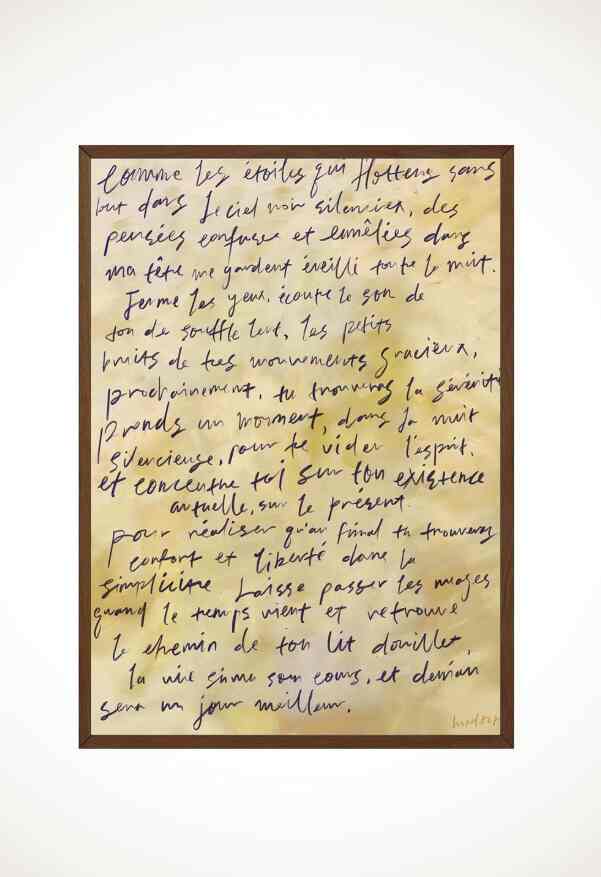 Comme les étoiles qui flottent sans
but dans le ciel noir silencieux, des
pensées confuses et emêlées dans
ma tête me gardent éveillé toute la nuit.
Ferme les yeux, écoute le son de
ton de souffle lent, les petits
bruits de tes mouvements gracieux,
prochainement, tu trouveras la sérénité
prends un moment, dans la nuit
silencieuse, pour te vider l'esprit,
et concentre toi sur ton existence
actuelle, sur le présent.
pour réaliser qu'au final tu trouveras
confort et liberté dans la
simplicitée Laisse passer les nuages
quand le temps vient et retrouve
le chemin de ton lit douillet,
la vie suive son cours, et demain
sera un jour meilleur.